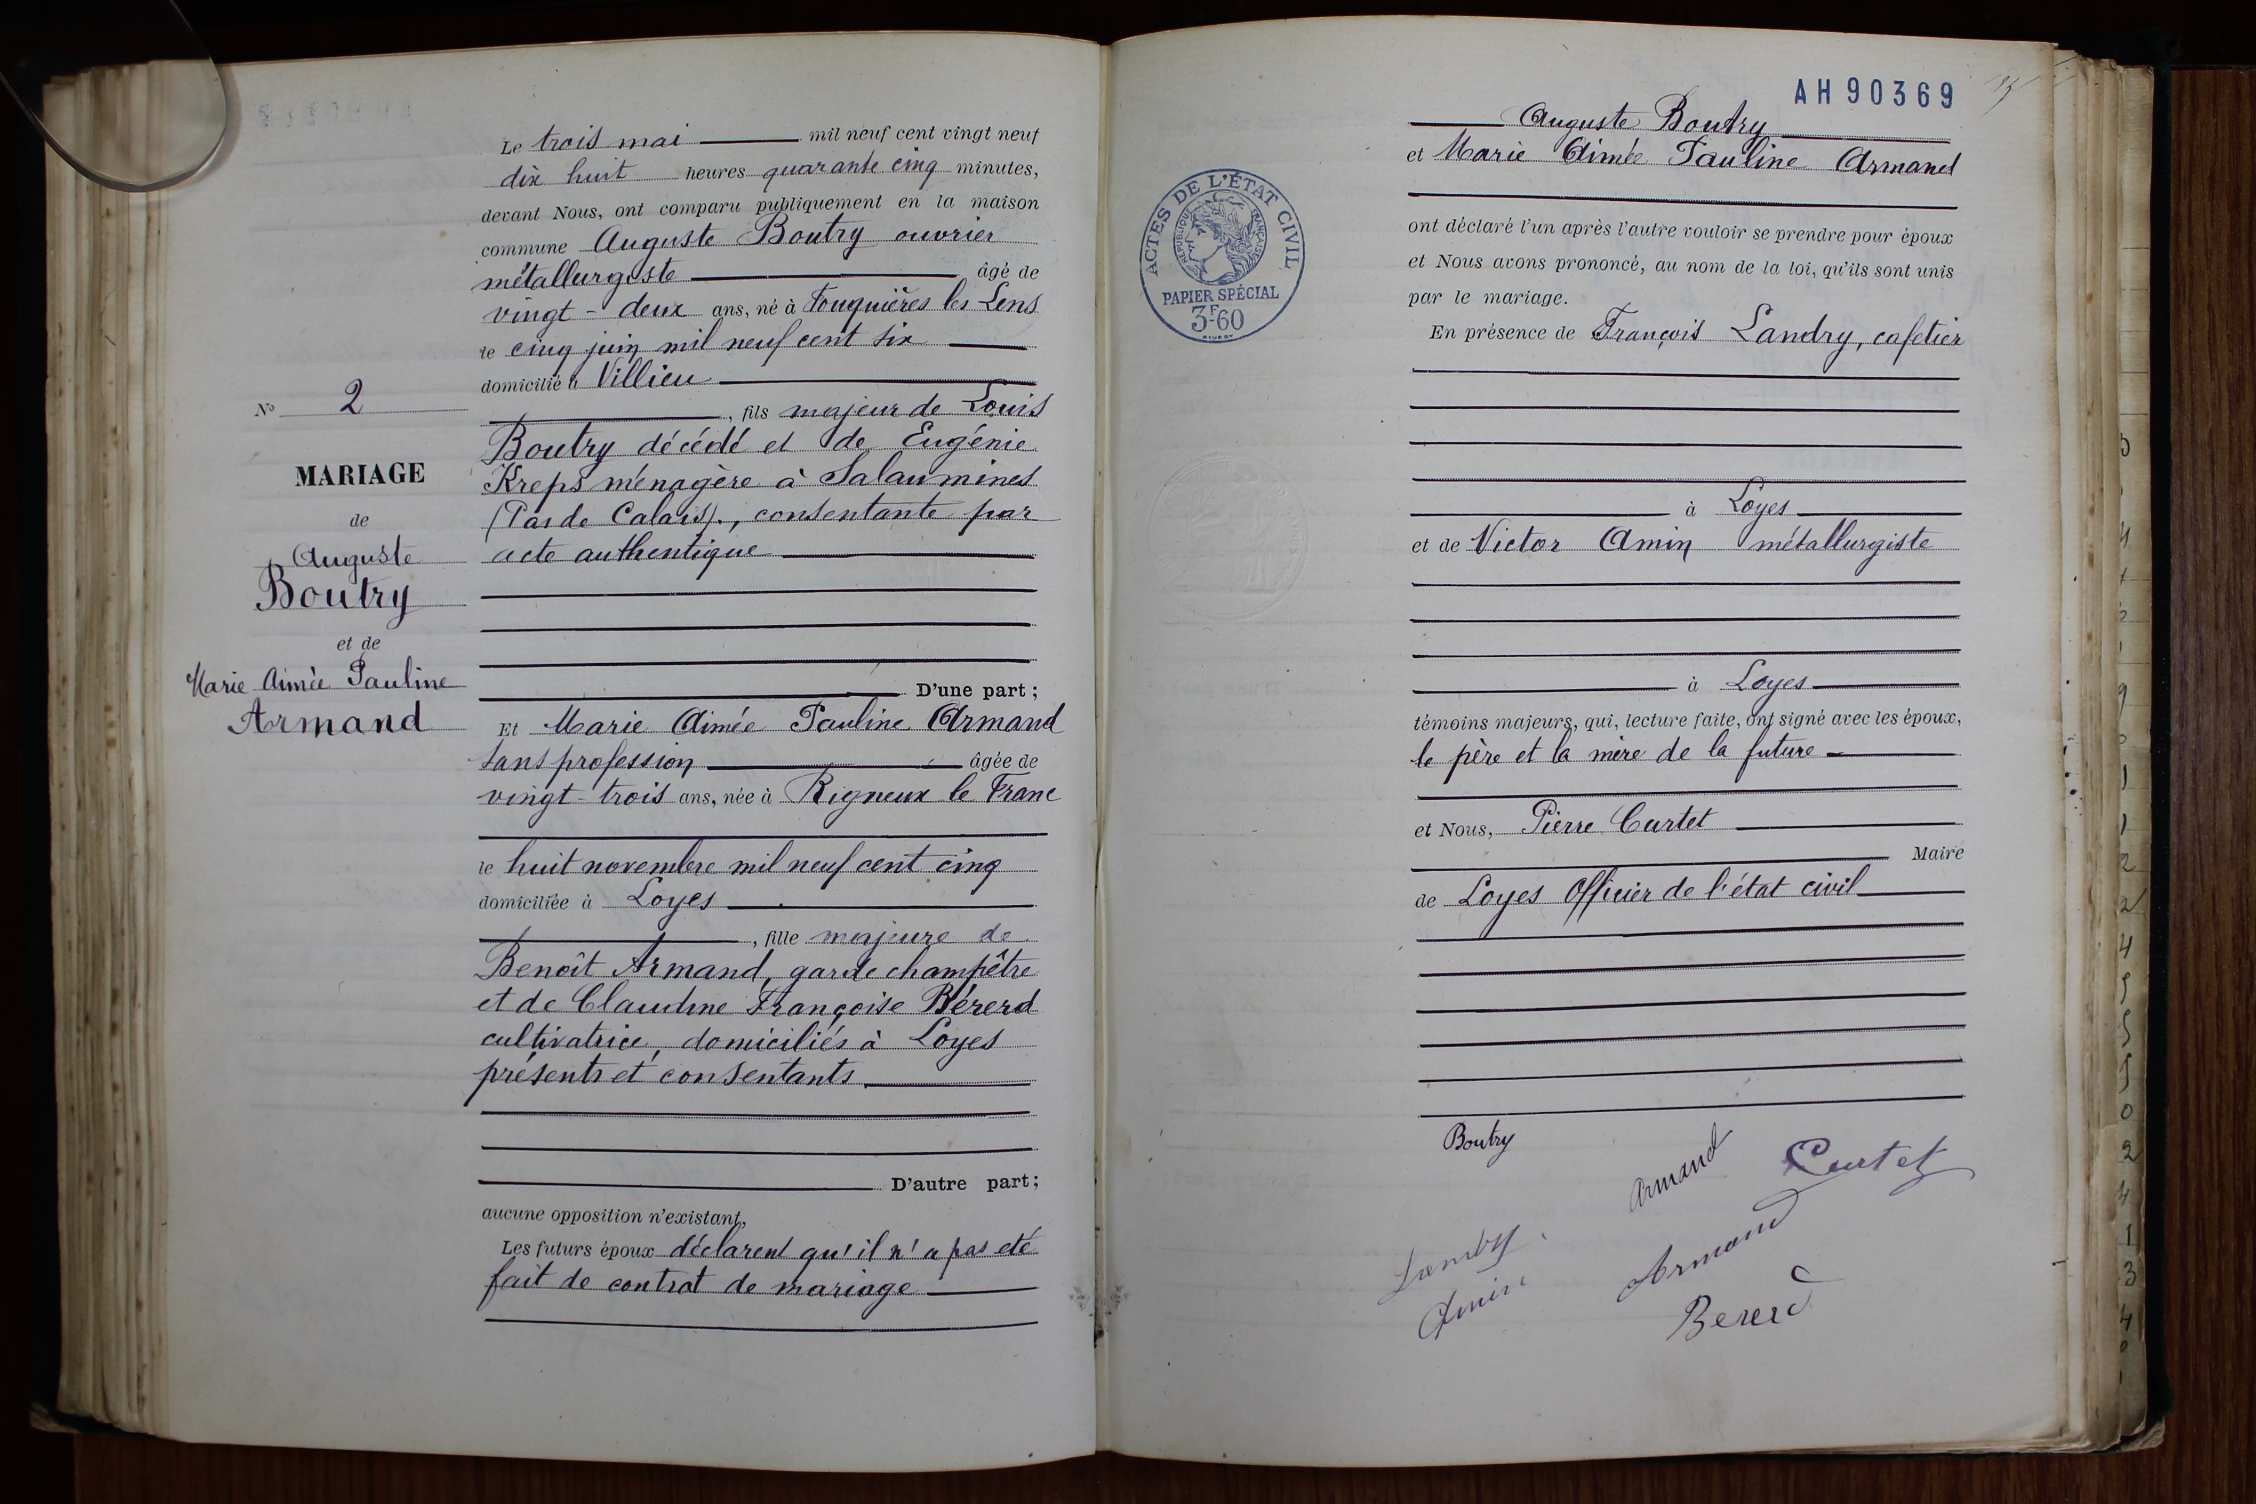 Le trois mai mil neuf cent vingt neuf
dix huit heures quarante cinq minutes,
devant Nous, ont comparu publiquement en la maison
commune Auguste Boutry ouvrier
métallurgiste âgé de
vingt-deux ans, né à Fouquières les Lens
le cinq juin mil neuf cent six
domicilié à Villieu
, fils majeur de Louis
Boutry décédé et de Eugénie
Kreps ménagère à Salaumines
(Pas de Calais)., consentante par
acte authentique
D'une part ;
N° 2
MARIAGE
de
Auguste
Boutry
et de
Marie Aimée Pauline
Armand
Et Marie Aimée Pauline Armand
sans profession âgée de
vingt-trois ans, née à Rigneux le Franc
le huit novembre mil neuf cent cinq
domiciliée à Loyes
, fille majeure de
Benoît Armand, garde champêtre
et de Claudine Françoise Bérerd
cultivatrice, domiciliés à Loyes
présents et consentants.
D'autre part ;
aucune opposition n'existant,
Les futurs époux déclarent qu'il n'a pas été
fait de contrat de mariage
AH90369
Auguste Boutry
et Marie Aimée Pauline Armand
ACTES DE L'ÉTAT CIVIL
RÉPUBLIQUE FRANÇAISE
PAPIER SPÉCIAL
3F60
ont déclaré l'un après l'autre vouloir se prendre pour époux
et Nous avons prononcé, au nom de la loi, qu'ils sont unis
par le mariage.
En présence de François Landry, cafetier
à Loyes
et de Victor Amin métallurgiste
à Loyes
témoins majeurs, qui, lecture faite, ont signé avec les époux,
le père et la mère de la future
et Nous, Pierre Curtet
Maire
de Loyes Officier de l'état civil
Boutry
Armand
Curtet
Landry
Armand
Amin
Bererd